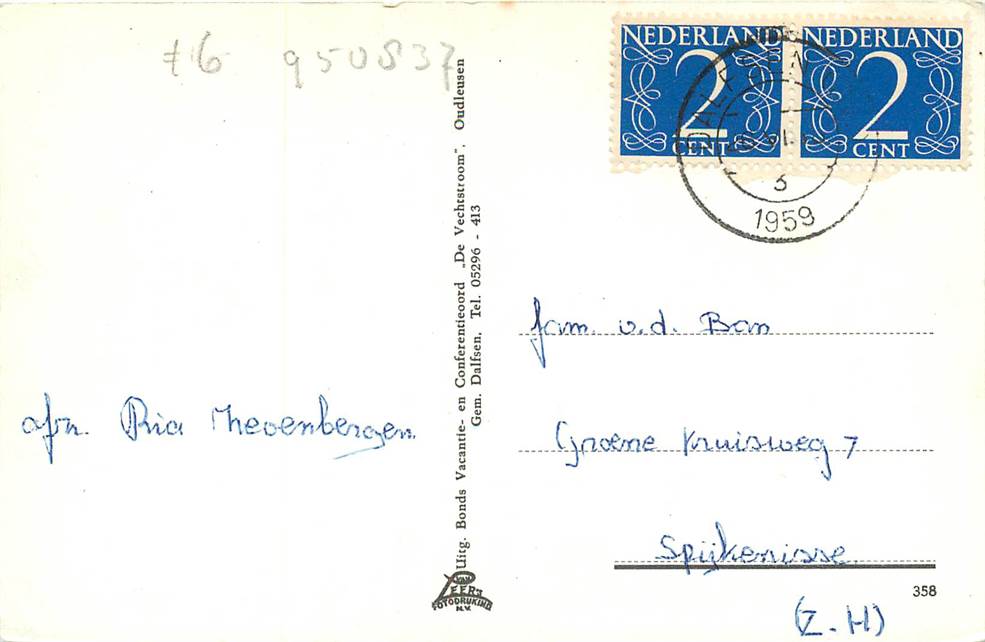 76 950837
NEDERLAND
2
CENT
NEDERLAND
2
CENT
DALFSEN
3
1959
afz. Ria
Uitg. Bonds Vacantie- en Conferentieoord „De Vechtstroom”, Oudleusen
Gem. Dalfsen. Tel. 05296 - 413
VAN
LEER'S
FOTODRUKIND
N.V.
fam. v.d. Ban
Groene Kruisweg 7
Spijkenisse
358
(Z.H)